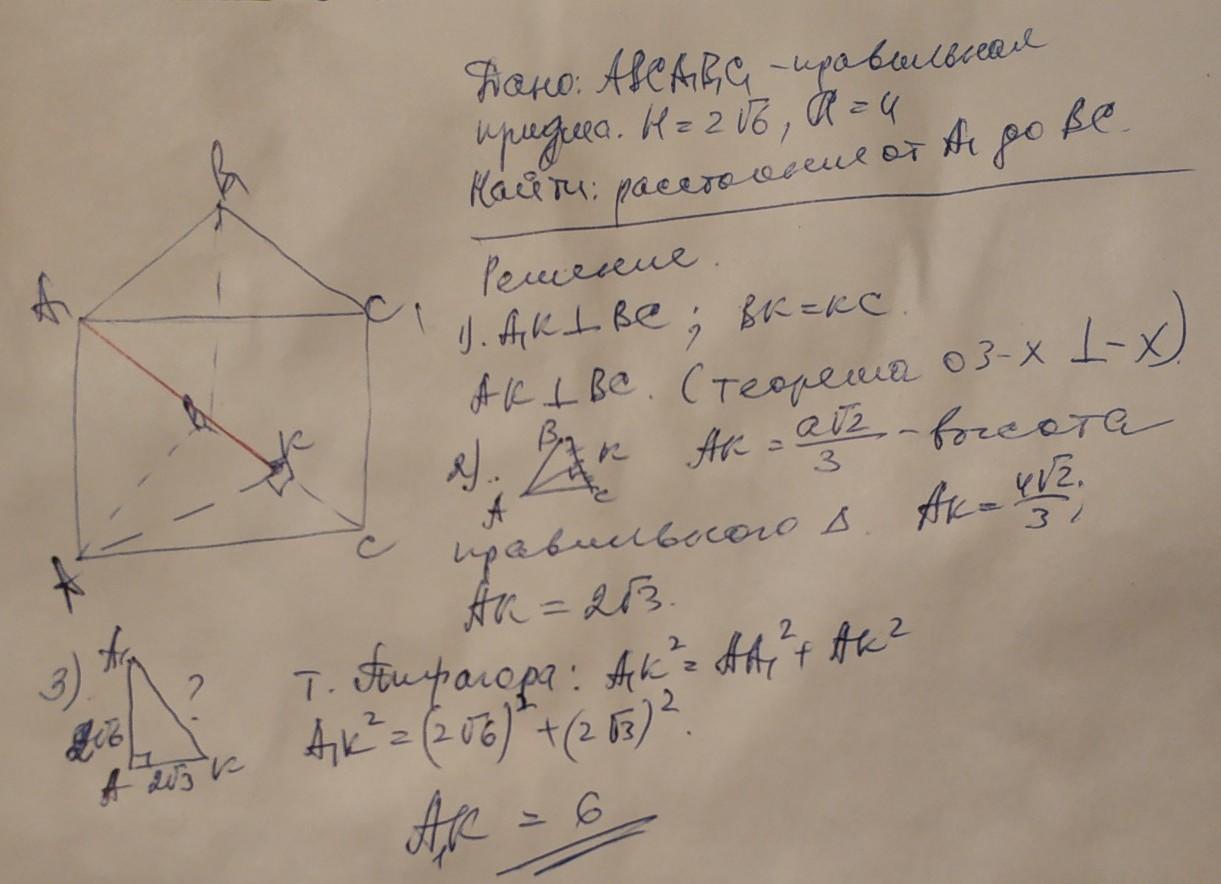 Дано: ABCA₁B₁C₁ - правильная
призма. H = 2√6, a = 4
Найти: расстояние от A₁ до BC.
Решение.
1). A₁K ⊥ BC ; BK = KC.
AK ⊥ BC. (теорема о 3-х ⊥-х).
2). AK = a√2/3 - высота
правильного Δ. AK = 4√2/3;
AK = 2√3.
3). т. Пифагора: A₁K² = AA₁² + AK²
A₁K² = (2√6)² + (2√3)².
A₁K = 6
B₁
A₁
C₁
K
A
C
B
K
A
C
A₁
?
2√6
A
2√3
K